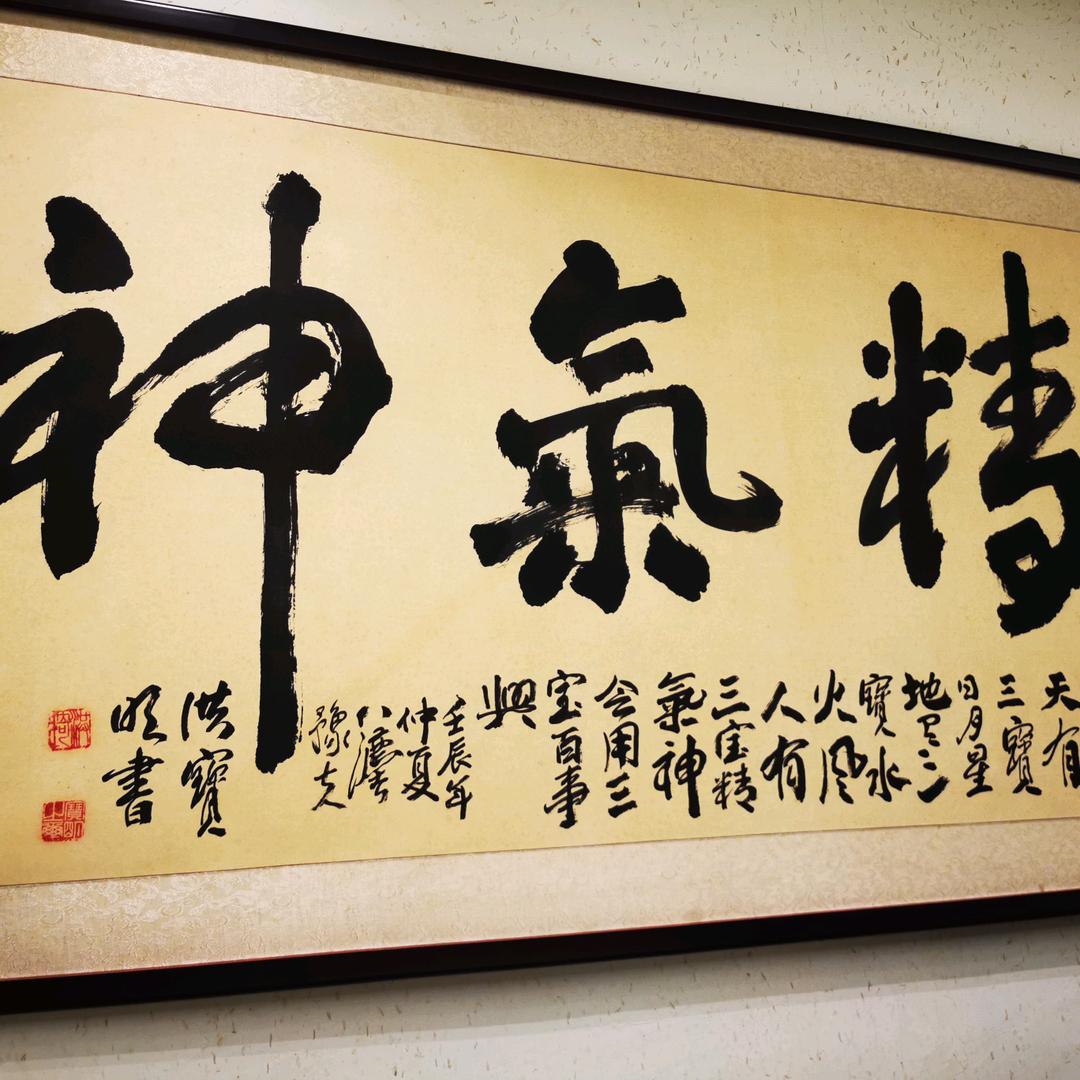 精氣神
天有
三寶
日月星
地有三
寶水
火風
人有
三宝精
氣神
会用三
宝百事
興
壬辰年
仲夏
洪寶
明書